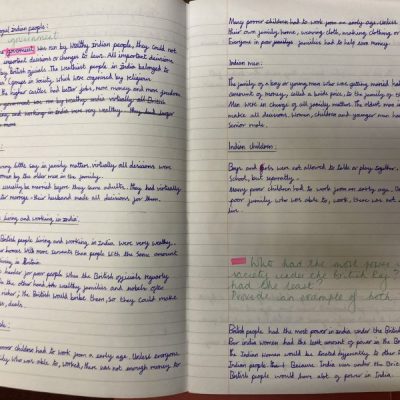 Indian people:
government
goverment was run by wealthy Indian people, they could not
important decisions or changes to laws. All important decisions
by British officials. The wealthiest people in India belonged to
groups in society which were organised by religious
the higher castes had better jobs, more money and more freedom
government was run by wealthy
living and working in India were very wealthy. They had larger
little say in family matters, virtually all decisions were
by the older men in the family.
usually be married before they were adults. They had virtually
marriage - their husband made all decisions for them.
living and working in India:
British people living and working in India were very wealthy.
homes with more servants than people with the same amount
living in Britain.
harder for poor people when the British officials
the other hand, the wealthy families and
richer; the British would bribe them, so they could make
deals.
poor children had to work from an early age. Unless everyone
family who was able to, worked, there was not enough money to
Many poorer children had to work from an early age. Unless
their own family home, weaving cloth, making clothing or
Everyone in poor families had to help earn money
Indian men:
The family of a boy or young man who was getting married had
amount of money, called a bride price, to the family of the
Men were in charge of all family matters. The oldest men
make all decisions. Women, children and younger men had
senior male.
Indian children:
Boys and girls were not allowed to talk or play together.
School, but separately.
Many poorer children had to work from an early age.
poor family who was able to, work, there was not
live.
Who had the most power
society under the British Raj?
had the least?
Provide an example of both.
British people had the most power in India under the British
Poor India women had the least amount of power in the
The Indian women would be treated differently to other
Indian people. Because India was under the
British people would have alot of power in India.